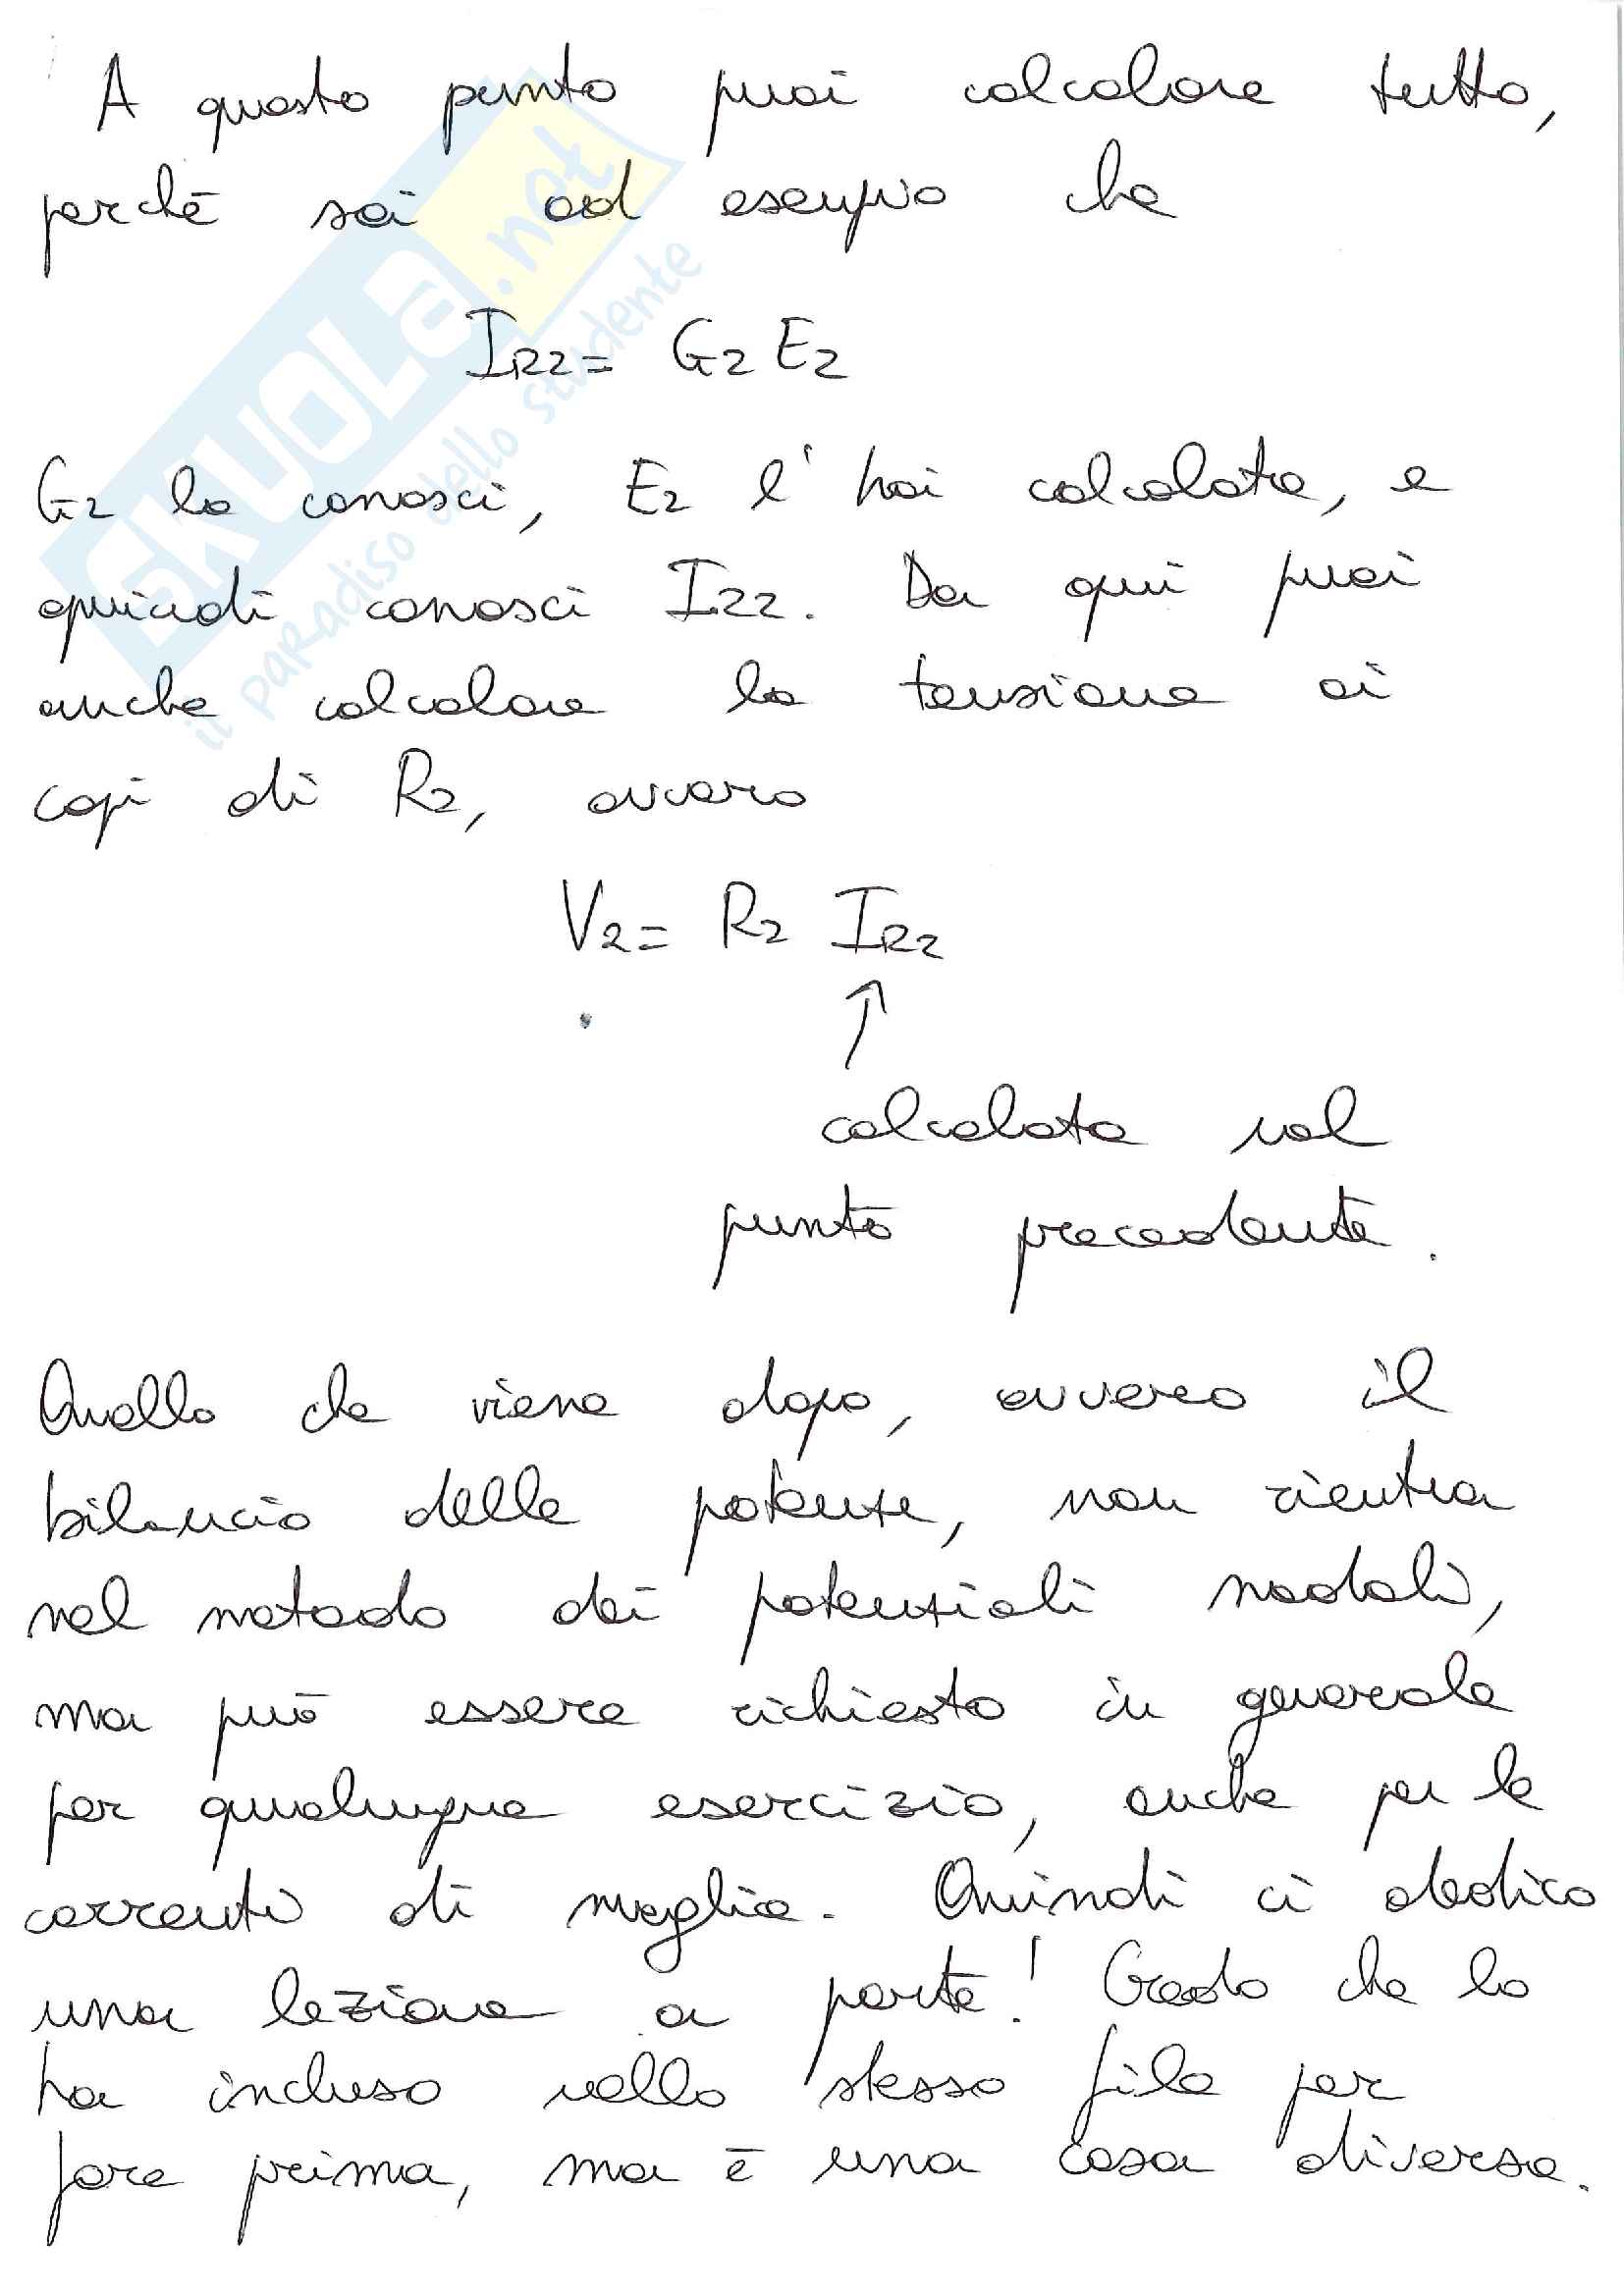 A questo punto puoi calcolare tutto,
perchē sai ad esempio che
IR2 = G2 E2
G2 la conosci, E2 l'hai calcolata, e
quindi conosci IR2. Da qui puoi
anche calcolare la tensione ai
capi di R2, ovvero
V2 = R2 IR2
↑
calcolata nel
punto precedente.
Quello che viene dopo, ovvero il
bilancio delle potenze, non rientra
nel metodo dei potenziali nodali,
ma può essere richiesto in generale
per qualunque esercizio, anche per le
correnti di maglia. Quindi ci dedico
una lezione a parte! Credo che lo
ha incluso nello stesso file per
fare prima, ma ē una cosa diversa.
SKUOLA.net
il paradiso dello studente